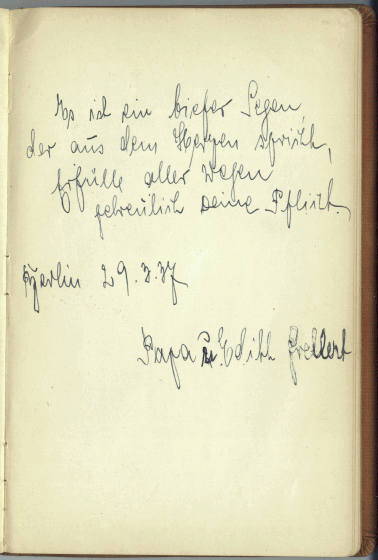 Es ist ein tiefer Segen
der aus dem Herzen spricht,
Erfülle aller Wegen
getreulich deine Pflicht.
Berlin 29.3.37
Papa u. Edith Grellert